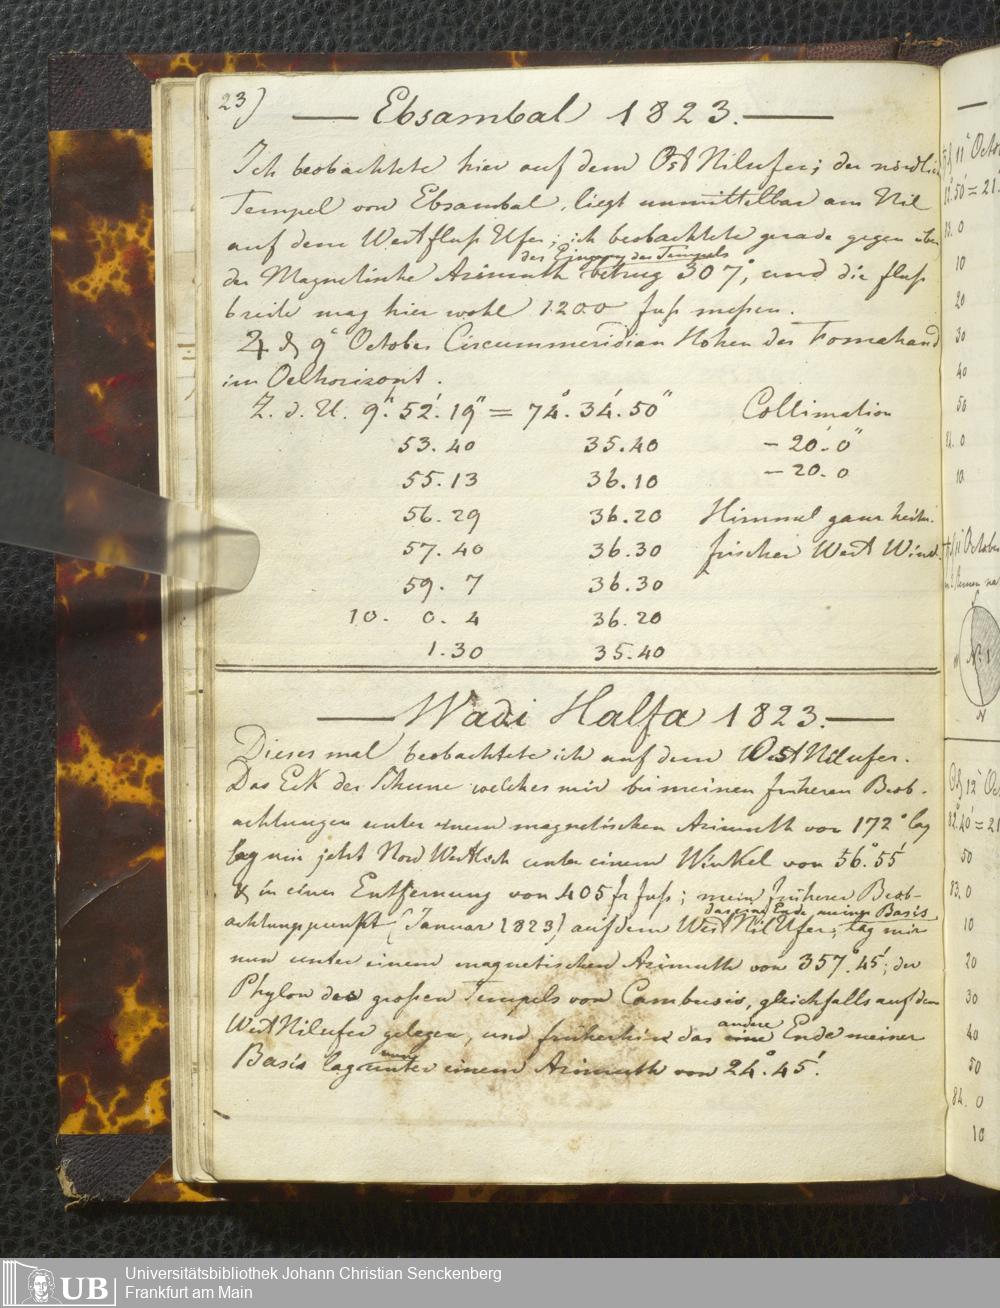 23)
Ebsambal 1823.
Ich beobachtete hier auf dem Ost Nilufer; der nördlich
Tempel von Ebsambal, liegt unmittelbar am Nil
auf dem Westfluß Ufer; ich beobachtete gerade gegen über
der Eingang des Tempels
der Magnetische Azimuth betrug 307°, und die fluß
breite mag hier wohl 1200 fuß meßen.
♃ d 9 October Circummeridian Höhen des Fomahand
im Oelhorizont.
Z. d. U. 9h. 52'. 19" = 74°. 34'. 50" Collimation
53. 40 35. 40 - 20'. 0"
55. 13 36. 10 - 20. 0
56. 29 36. 20 Himmel ganz heiter.
57. 40 36. 30 frischer West Wind.
59. 7 36. 30
10. 0. 4 36. 20
1. 30 35. 40
Wadi Halfa 1823.
Dieses mal beobachtete ich auf dem Ost Nilufer.
Das Eck der Schune welches mir bei meinen früheren Beob-
achtungen unter einem magnetischen Azimuth von 172° lag
lag mir jetzt Nord Westlich unter einem Winkel von 56°. 55'
& in einer Entfernung von 405 fr fuß; mein früherer Beob-
das eine Ende meiner Basis
achtungspunkt (Januar 1823) auf dem West Nil Ufer, lag mir
nun unter einem magnetischen Azimuth von 357°. 45'; der
Phylon des großen Tempels von Cambusis, gleichfalls auf dem
West Nilufer gelegen, und früherhin das eine Ende meiner
andere
Basis lag unter einem Azimuth von 24°. 45'.
nun
11 Octo
50' = 21
0
10
20
30
40
50
0
10
11 October
N
12 Oc
82°. 40' = 21
50
83. 0
10
20
30
40
50
84. 0
10
UB
Universitätsbibliothek Johann Christian Senckenberg
Frankfurt am Main